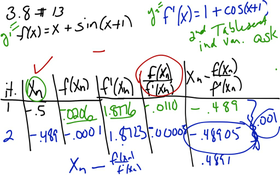 3.8 #13
y'= f(x) = x + sin(x+1)
y= f'(x) = 1 + cos(x+1)
2nd Tableset
ind var. ask
it. Xn f(xn) f'(xn) f(xn)/f'(xn) Xn - f(xn)/f'(xn)
1 -.5 -.0206 1.8776 -.0110 -.489
.001
2 -.489 -.0001 1.8723 -.00005 -.48905
Xn - f(xn)/f'(xn) -.4891